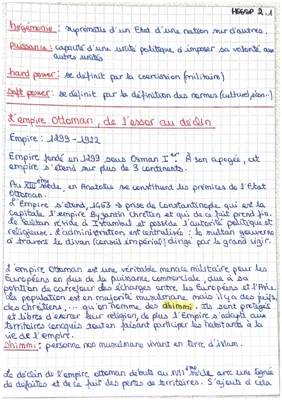 HGGSP 2.1
Hégémonie : suprématie d'un Etat d'une nation sur d'autres.
Puissance : capacité d'une unité politique d'imposer sa volonté aux
autres unités
hard power : se définit par la coersion (militaire)
soft power : se définit par la définition des normes (culturel, son..)
L'empire Ottoman, de l'essor au déclin
Empire : 1299 - 1922
Empire fondé en 1299 sous Osman Ier. À son apogée, cet
empire s'étend sur plus de 3 continents.
Au XIIIème siècle, en Anatolie se constituent les prémices de l'Etat
Ottoman.
L'Empire s'étend, 1453 → prise de Constantinople qui est la
capitale l'empire Byzantin Chrétien et qui de ce fait prend fin.
Le Sultan réside à Istanbul et possède l'autorité politique et
religieuse, l'administration est centralisée : le sultan gouverne
à travers le divan (conseil impérial) dirigé par le grand vizir.
L'empire Ottoman est une véritable menace militaire pour les
Européens en plus de la puissance commerciale, due à sa
position de carrefour des échanges entre les Européens et l'Asie.
La population est en majorité musulmane mais il y a des juifs,
des chrétiens, ... qu'on nomme des dhimmi. Ils sont protégés
et libres d'exercer leur religion, de plus l'Empire s'adapte aux
territoires conquis tout en faisant participer les habitants à la
vie de l'empire.
Dhimmi : personne non musulmane vivant en terre d'Islam.
Le déclin de l'empire ottoman débute au XVIIème siècle avec une lignée
de défaites et de ce fait des pertes de territoires. S'ajoute à cela